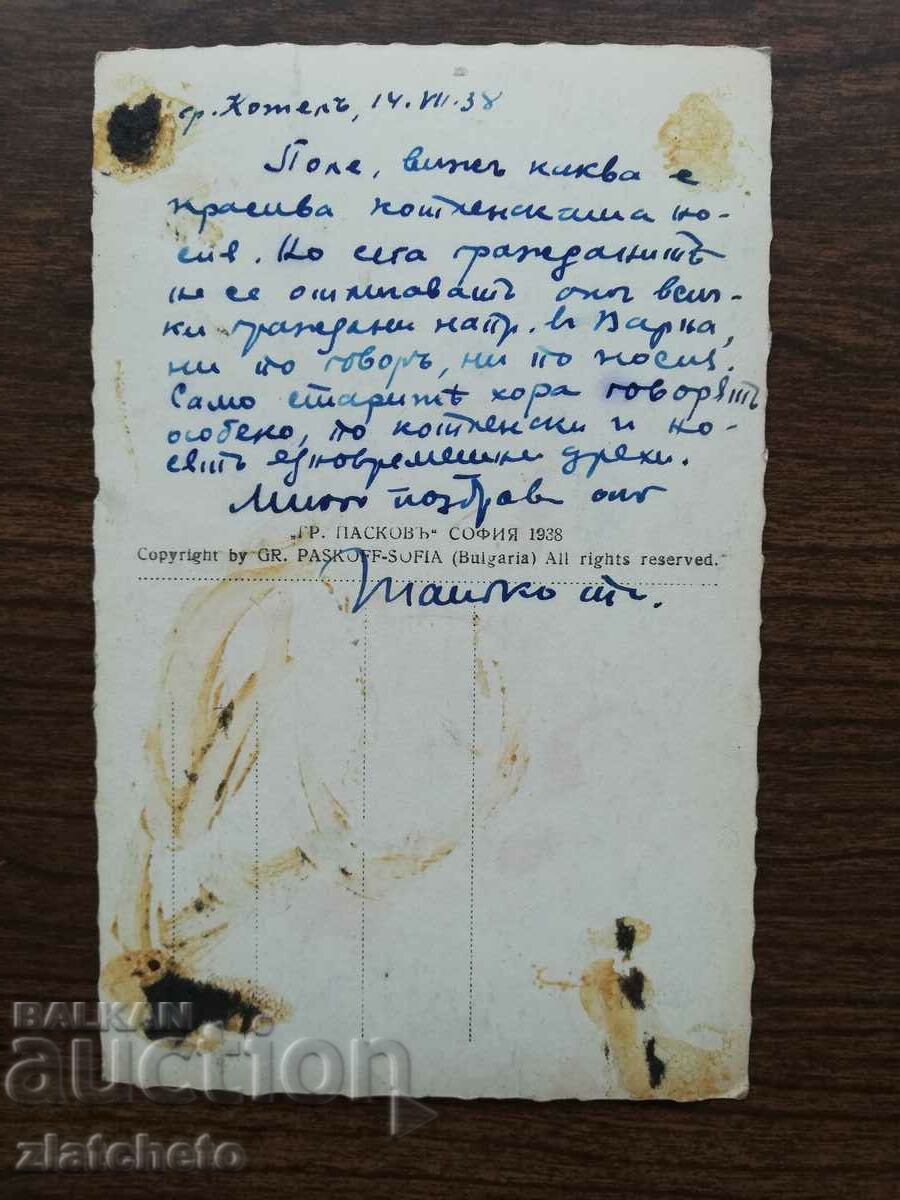 гр. Котелъ, 14.VII.38
Поле, вижъ каква е
красива котленската но-
сия. Но сега гражданитѣ
не се отличаватъ отъ всич-
ки граждани напр. въ Варна,
ни по говоръ, ни по носия.
Само старитѣ хора говорятъ
особено, по котленски и но-
сятъ едновремешни дрехи.
Много поздрави отъ
„ГР. ПАСКОВЪ" СОФИЯ 1938
Copyright by GR. PASKOFF-SOFIA (Bulgaria) All rights reserved.
BALKAN
auction
zlatcheto